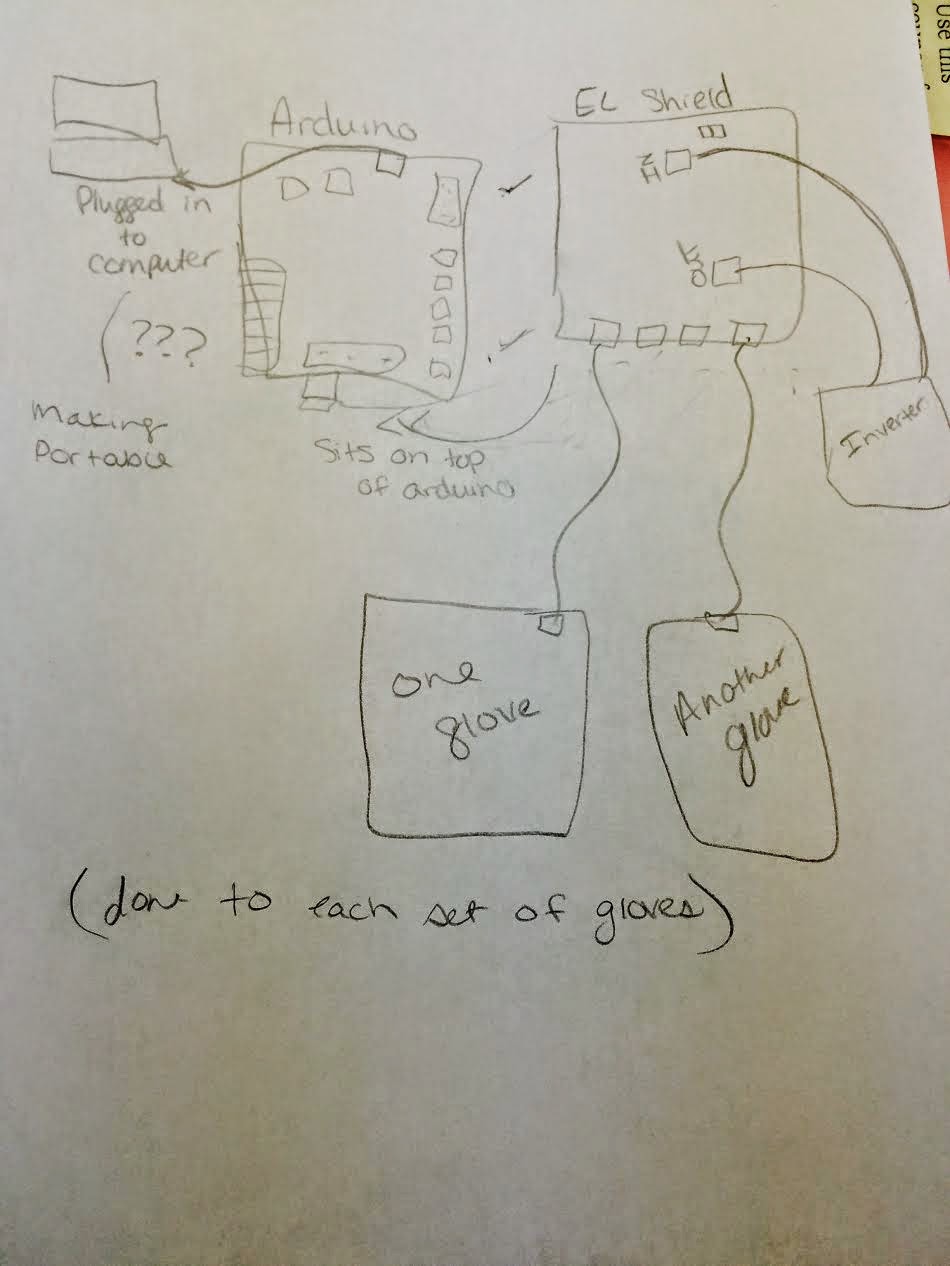 Use this
Arduino
EL Shield
IN
Plugged in
to
computer
???
Making
Portable
Sits on top
of arduino
Inverter
one
glove
Another
glove
(done to each set of gloves)